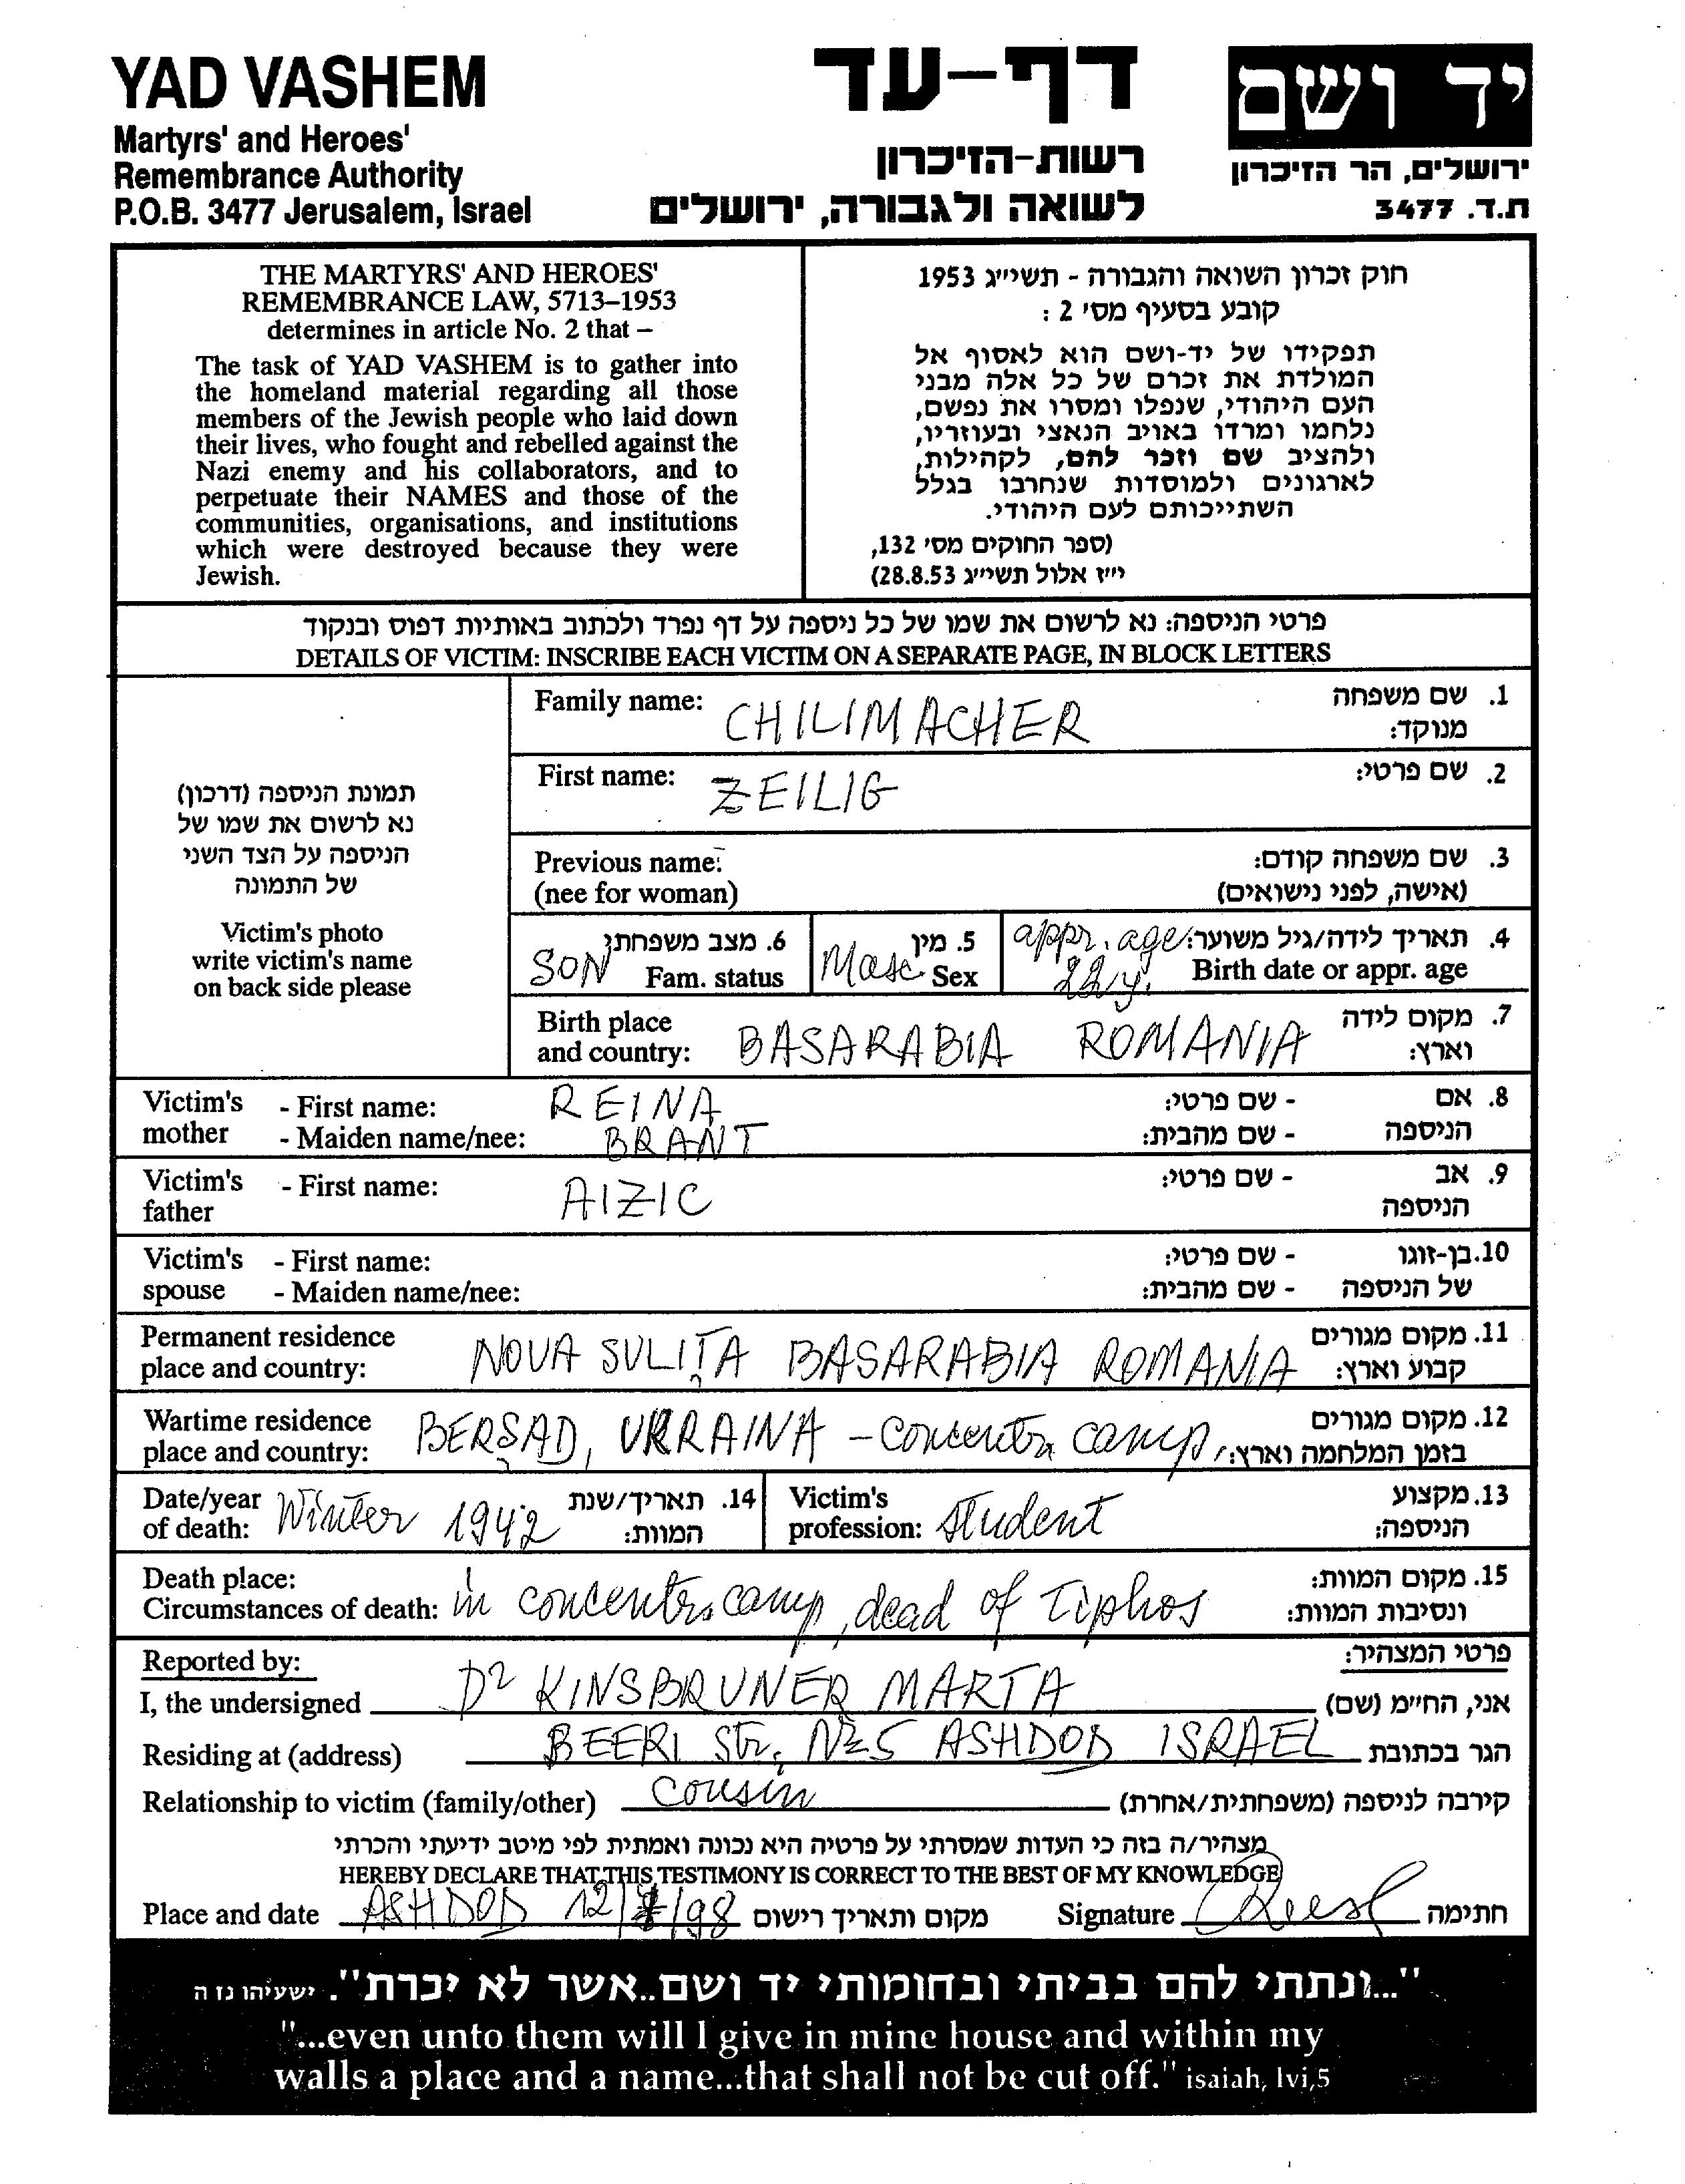 YAD VASHEM
Martyrs' and Heroes'
Remembrance Authority
P.O.B. 3477 Jerusalem, Israel
דף-עד
רשות-הזיכרון
לשואה ולגבורה, ירושלים
יד ושם
ירושלים, הר הזיכרון
ת.ד. 3477
THE MARTYRS' AND HEROES'
REMEMBRANCE LAW, 5713–1953
determines in article No. 2 that –
The task of YAD VASHEM is to gather into
the homeland material regarding all those
members of the Jewish people who laid down
their lives, who fought and rebelled against the
Nazi enemy and his collaborators, and to
perpetuate their NAMES and those of the
communities, organisations, and institutions
which were destroyed because they were
Jewish.
חוק זכרון השואה והגבורה - תשי״ג 1953
קובע בסעיף מס׳ 2 :
תפקידו של יד-ושם הוא לאסוף אל
המולדת את זכרם של כל אלה מבני
העם היהודי, שנפלו ומסרו את נפשם,
נלחמו ומרדו באויב הנאצי ובעוזריו,
ולהציב שם וזכר להם, לקהילות,
לארגונים ולמוסדות שנחרבו בגלל
השתייכותם לעם היהודי.
(ספר החוקים מס׳ 132,
י״ז אלול תשי״ג 28.8.53)
פרטי הניספה: נא לרשום את שמו של כל ניספה על דף נפרד ולכתוב באותיות דפוס ובנקוד
DETAILS OF VICTIM: INSCRIBE EACH VICTIM ON A SEPARATE PAGE, IN BLOCK LETTERS
תמונת הניספה (דרכון)
נא לרשום את שמו של
הניספה על הצד השני
של התמונה
Victim's photo
write victim's name
on back side please
Family name: CHILIMACHER 1. שם משפחה
מנוקד:
First name: ZEILIG 2. שם פרטי:
Previous name: 3. שם משפחה קודם:
(nee for woman) (אישה, לפני נישואים)
SON 6. מצב משפחתי Masc 5. מין appr. age 4. תאריך לידה/גיל משוער:
Fam. status Sex 22 y. Birth date or appr. age
Birth place 7. מקום לידה
and country: BASARABIA ROMANIA וארץ:
Victim's - First name: REINA - שם פרטי: 8. אם
mother - Maiden name/nee: BRANT - שם מהבית: הניספה
Victim's - First name: AIZIC - שם פרטי: 9. אב
father הניספה
Victim's - First name: - שם פרטי: 10. בן-זוגו
spouse - Maiden name/nee: - שם מהבית: של הניספה
Permanent residence 11. מקום מגורים
place and country: NOUA SULIȚA BASARABIA ROMANIA קבוע וארץ:
Wartime residence 12. מקום מגורים
place and country: BERȘAD, UKRAINA - Concentr. camp, בזמן המלחמה וארץ:
Date/year Winter 1942 14. תאריך/שנת Victim's student 13. מקצוע
of death: המוות: profession: הניספה:
Death place: 15. מקום המוות:
Circumstances of death: in concentr. camp, dead of Tiphos ונסיבות המוות:
Reported by: פרטי המצהיר:
I, the undersigned Dr KINSBRUNER MARTA אני, החיימ (שם)
Residing at (address) BEERI Str. Nr 5 ASHDOD ISRAEL הגר בכתובת
Relationship to victim (family/other) Cousin קירבה לניספה (משפחתית/אחרת)
מצהיר/ה בזה כי העדות שמסרתי על פרטיה היא נכונה ואמתית לפי מיטב ידיעתי והכרתי
HEREBY DECLARE THAT THIS TESTIMONY IS CORRECT TO THE BEST OF MY KNOWLEDGE
Place and date ASHDOD מקום ותאריך רישום Signature חתימה
"...ונתתי להם בביתי ובחומותי יד ושם..אשר לא יכרת". ישעיהו נז ה
"...even unto them will I give in mine house and within my
walls a place and a name...that shall not be cut off." isaiah, lvi,5